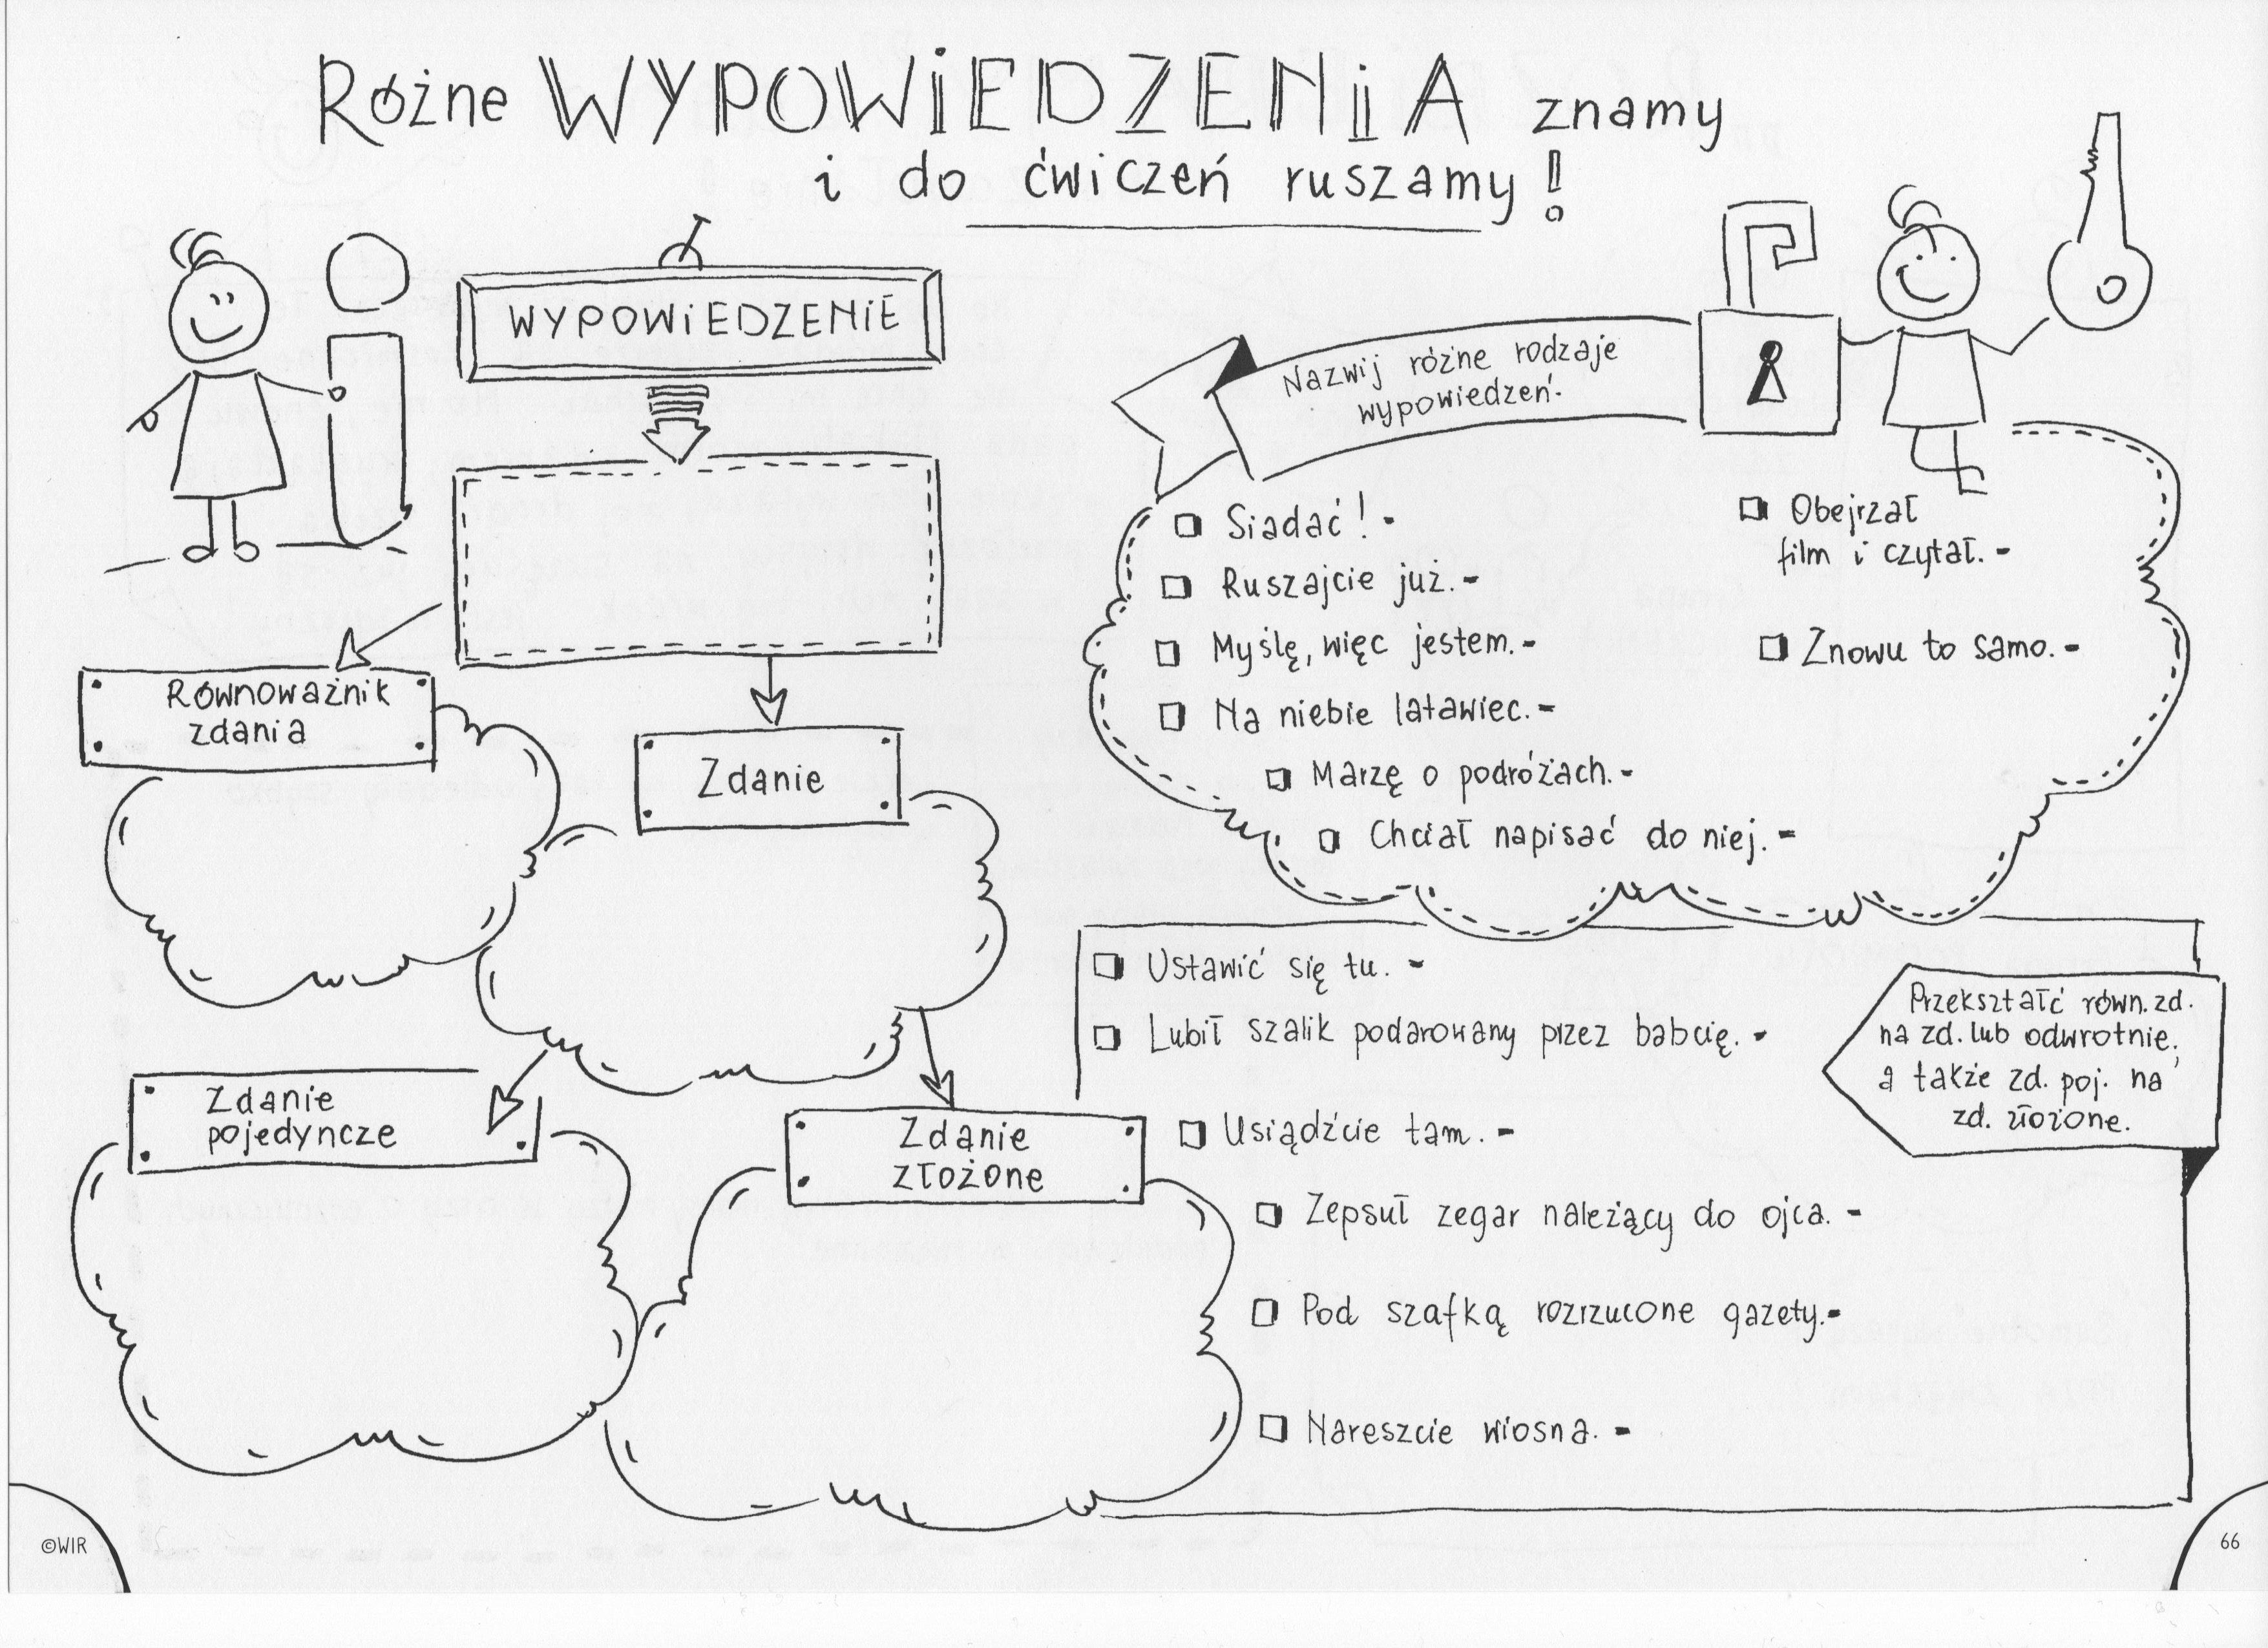 Różne WYPOWiEDZENiA znamy
i do ćwiczeń ruszamy!
WYPOWiEDZENiE
Równoważnik
zdania
Zdanie
Zdanie
pojedyncze
Zdanie
złożone
Nazwij różne rodzaje
wypowiedzeń.
Siadać! -
Ruszajcie już. -
Myślę, więc jestem. -
Na niebie latawiec. -
Marzę o podróżach. -
Chciał napisać do niej. -
Obejrzał
film i czytał. -
Znowu to samo. -
Przekształć równ. zd.
na zd. lub odwrotnie,
a także zd. poj. na
zd. złożone.
Ustawić się tu. -
Lubił szalik podarowany przez babcię. -
Usiądźcie tam. -
Zepsuł zegar należący do ojca. -
Pod szafką rozrzucone gazety. -
Nareszcie wiosna. -
©WIR
66